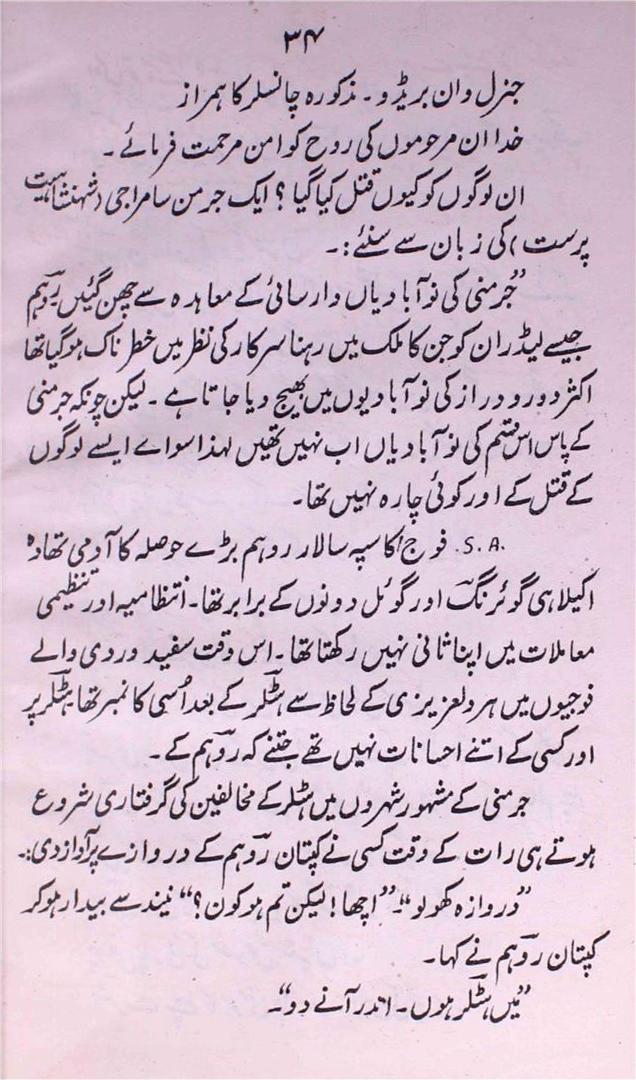 ۳۴
جنرل وان بریڈو۔ مذکورہ چانسلر کا ہمراز
خدا ان مرحوموں کی روح کو امن مرحمت فرمائے۔
ان لوگوں کو کیوں قتل کیا گیا؟ ایک جرمن سامراجی (شہنشاہیت
پرست) کی زبان سے سنئے:۔
”جرمنی کی نوآبادیاں وارسائی کے معاہدہ سے چھن گئیں روہم
جیسے لیڈران کو جن کا ملک میں رہنا سرکار کی نظر میں خطرناک ہو گیا تھا
اکثر دور و دراز کی نوآبادیوں میں بھیج دیا جاتا ہے۔ لیکن چونکہ جرمنی
کے پاس اس قسم کی نوآبادیاں اب نہیں تھیں لہذا سواے ایسے لوگوں
کے قتل کے اور کوئی چارہ نہیں تھا۔
S.A. فوج کا سپہ سالار روہم بڑے حوصلہ کا آدمی تھا وہ
اکیلا ہی گوئرنگ اور گوئل دونوں کے برابر تھا۔ انتظامیہ اور تنظیمی
معاملات میں اپنا ثانی نہیں رکھتا تھا۔ اس وقت سفید وردی والے
فوجیوں میں ہردلعزیزی کے لحاظ سے ہٹلر کے بعد اُسی کا نمبر تھا ہٹلر پر
اور کسی کے اتنے احسانات نہیں تھے جتنے کہ روہم کے۔
جرمنی کے مشہور شہروں میں ہٹلر کے مخالفین کی گرفتاری شروع
ہوتے ہی رات کے وقت کسی نے کپتان روہم کے دروازے پر آواز دی:۔
”دروازہ کھولو“۔ ”اچھا! لیکن تم ہو کون؟“ نیند سے بیدار ہو کر
کپتان روہم نے کہا۔
”میں ہٹلر ہوں۔ اندر آنے دو“۔